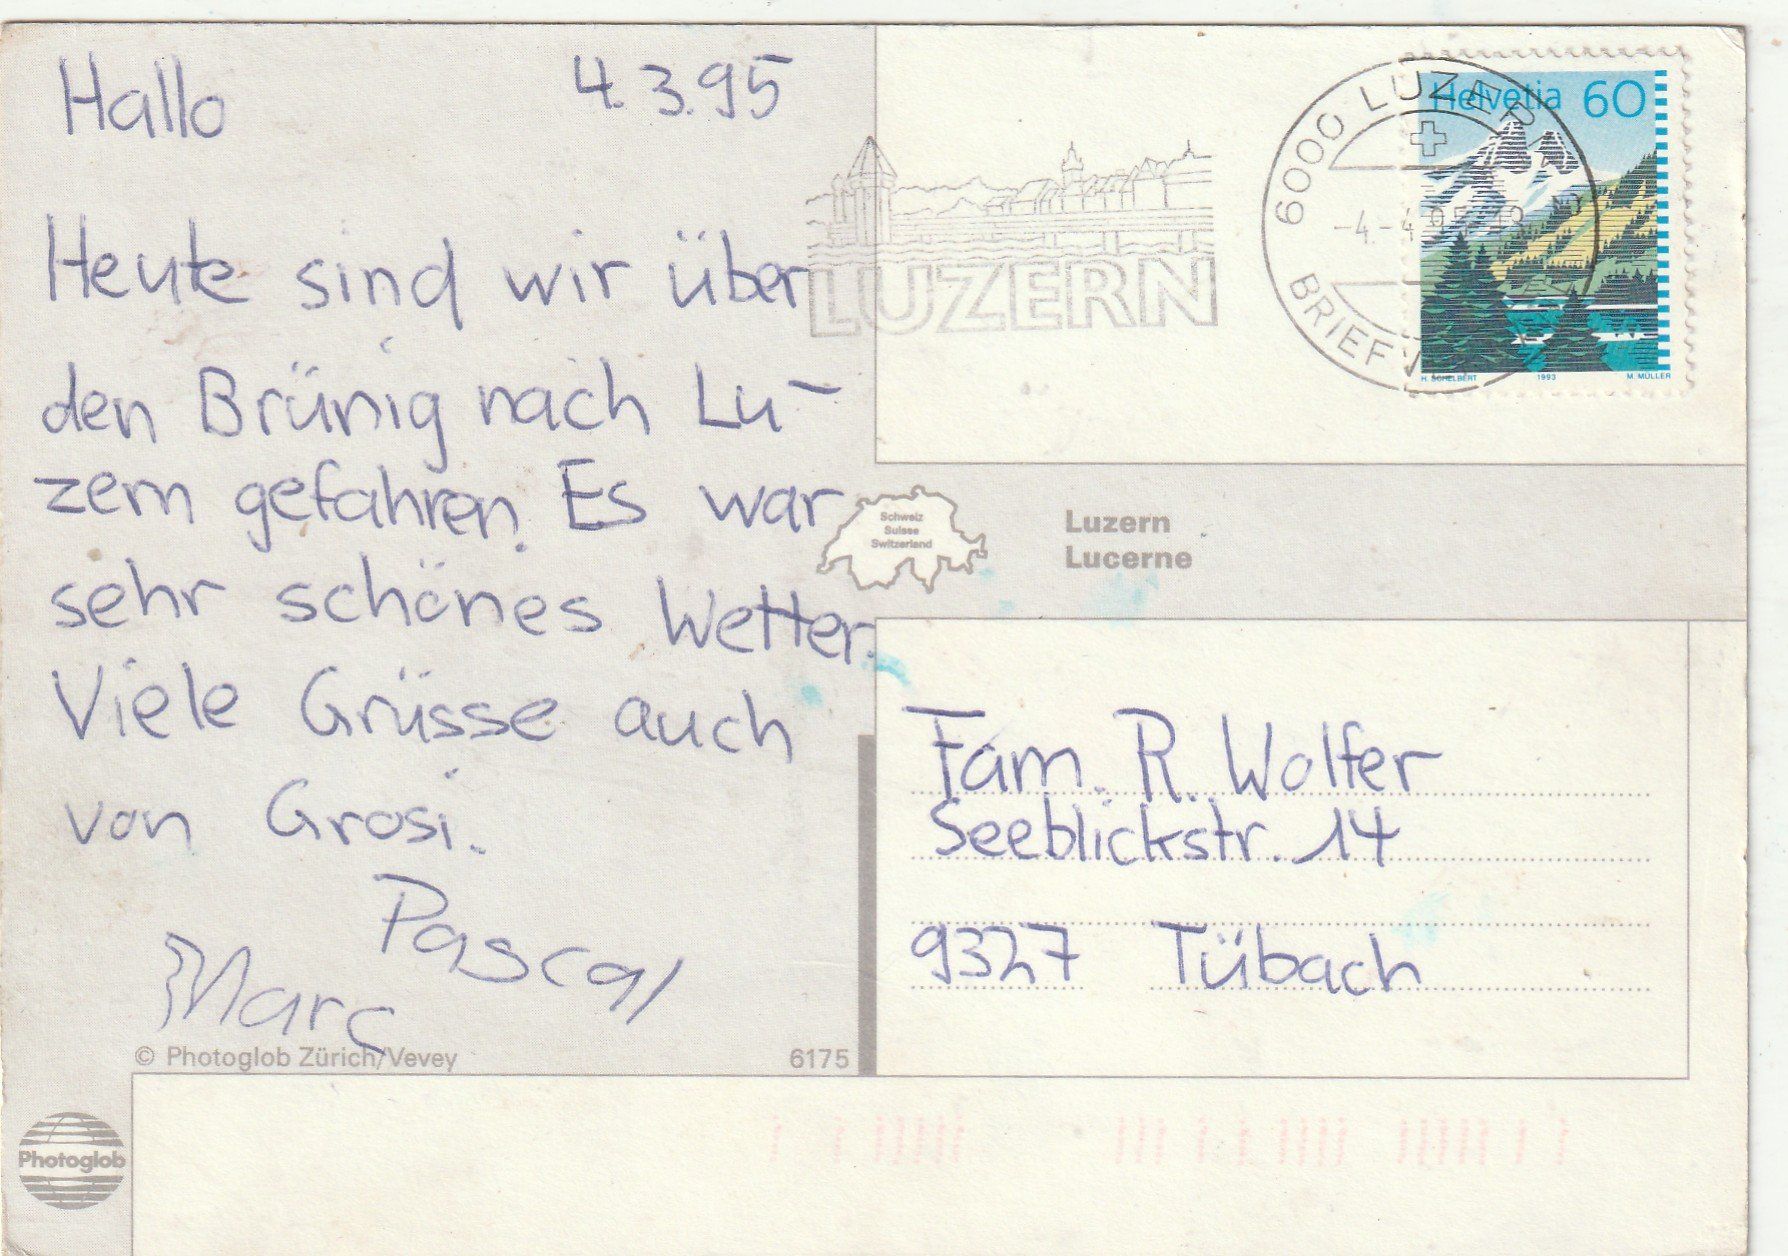 Hallo 4.3.95
Heute sind wir über
den Brünig nach Lu-
zern gefahren. Es war
sehr schönes Wetter.
Viele Grüsse auch
von Grosi.
Pascal
Marc
© Photoglob Zürich/Vevey 6175
Photoglob
LUZERN
6000 LUZERN
BRIEF
Helvetia 60
H. SCHELBERT 1993 M. MÜLLER
Schweiz
Suisse
Switzerland
Luzern
Lucerne
Fam. R. Wolfer
Seeblickstr. 14
9327 Tübach